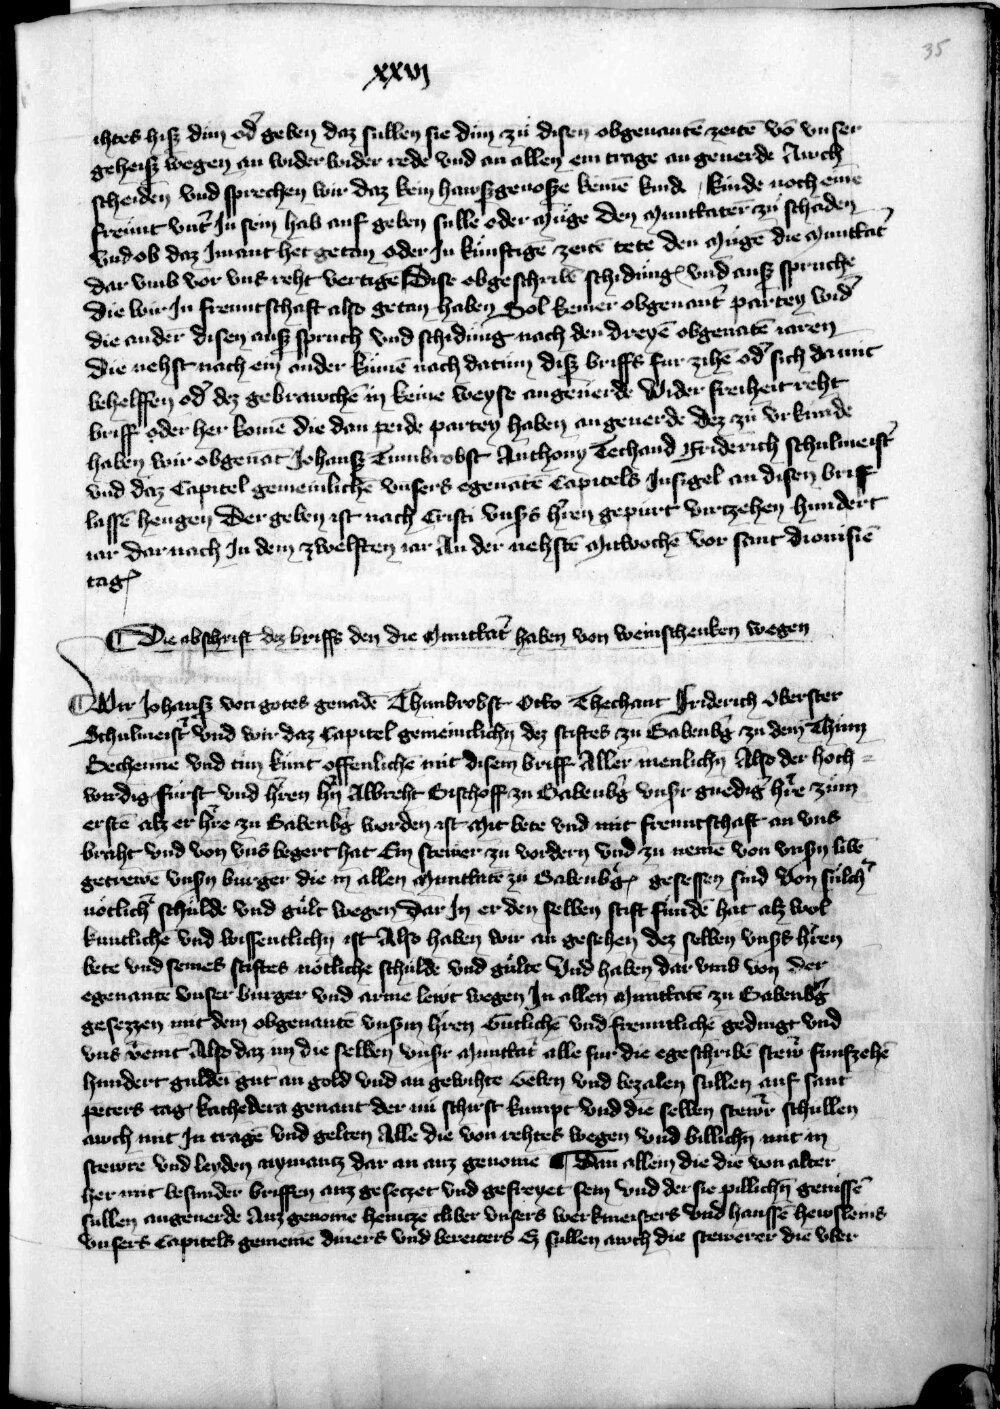 35
xxvj
ihtes hisz dim od̕ geben daz sullen sie dim zů disen obgenantē zeitē vō vnser
geheisz wegen an wider wider rede vnd an allen ein trage an geuerde Auch
scheiden vnd sprechen wir daz kein hawszgenosze keinē kind kinde noch eine
freünt vnt̕ Jn sein hab auf geben sülle oder müge den Munttatēr zü schaden
Vnd ob daz Jmant het getan oder Jn künftigē zeitē tete den mügē die Munttat̕
dar vmb vor vns reht vertigē Dise obgeschribē schidüng vnd ausz spruche
die wir Jn freuntschaft also getan haben Sol keiner obgenant̕ partey wid̕
die ander disen ausz spruch vnd schidüng nach den dreyē obgenātē iaren
die nehst nach ein ander kümē nach datum disz briffs fur zihē od̕ sich da mit
behelffen od̕ dez gebrawchē in keine weyse angeuerde Wider freiheit reht
briff oder her komē die dan peide partey haben angeuerde Dez zů vrkunde
haben wir obgenāt Johansz Tumbrobst Anthony Techand Friderich schulmeist̕
vnd daz Capitel gemeinlichē vnsers egenātē Capitels Jnsigel an disen briff
lassē hengen Der geben ist nach Cristi vnsers h̕ren gepurt virtzehen hundert
iar dar nach Jn dem zwelften iar An der nehstē Mitwochē vor sant dionisiē
tag
Die abschrift dez briffs den die Munttat̕ haben von weinschenken wegen
Wir Johansz von gotes genadē Thumbrobst Otto Thechant Friderich Oberster
Schulmeist̕ vnd wir daz Capitel gemeinlichn̄ dez stiftes zu Babenbg̕ zu dem Thum
Bechenne vnd tun kunt offenliche mit disem briff Aller menlichn̄ Also der hoch=
wirdig fürst vnd h̕ren hn̄ Albreht Bischoff zu Babenbg̕ vnsr gnedig̕ h̕re zům
erstē alz er h̕re zu Babenbg̕ worden ist Mit bete vnd mit freuntschaft an vns
braht vnd von vns begert hat Ein stewer zu vordern vnd zu nemē von vnsn̄ libē
getrewē vnsn̄ bürger die in allen Munttatē zu Babenbg̕ gesessen sind von sülch̕
nötlich̕ schulde vnd gült wegen Dar Jn er den selben stift fündē hat alz wol
kuntliche vnd wissentlichn̄ ist Also haben wir an gesehen dez selben vnsers h̕ren
bete vnd seines stiftes nötliche schulde vnd gülte Vnd haben dar vmb von der
egenantē vnser bürger vnd arme lewt wegen Jn allen Munttatē zu Babenbg̕
gesezzen mit dem obgenantē vnsrm h̕ren Gutlichē vnd freuntlichē gedingt vnd
vns v̕eint Also daz im die selben vnsr Munttat̕ alle fur die egeschribē stew̕r funfzehē
hundert guldēi gut an gold vnd an gewihte Geben vnd bezalen sullen auf sant
peters tag kathedera genant der nü schirst kumpt vnd die selben stew̕r schullen
awch mit Jn tragē vnd gelten Alle die von rehtes wegen vnd billichn̄ mit in
stewrē vnd leyden nymantz dar an auz genome Dan allein die die von alter
her mit besunder briffen auz gesetzet vnd gefreyet sein vnd der sie pillichn̄ genissē
sullen angeuerde Auz genome heintzē cliber vnsers werkmeisters vnd hanssē hewsleins
vnsers Capitels gemeine diners vnd bereiters Ez sullen awch die stewerer die vber